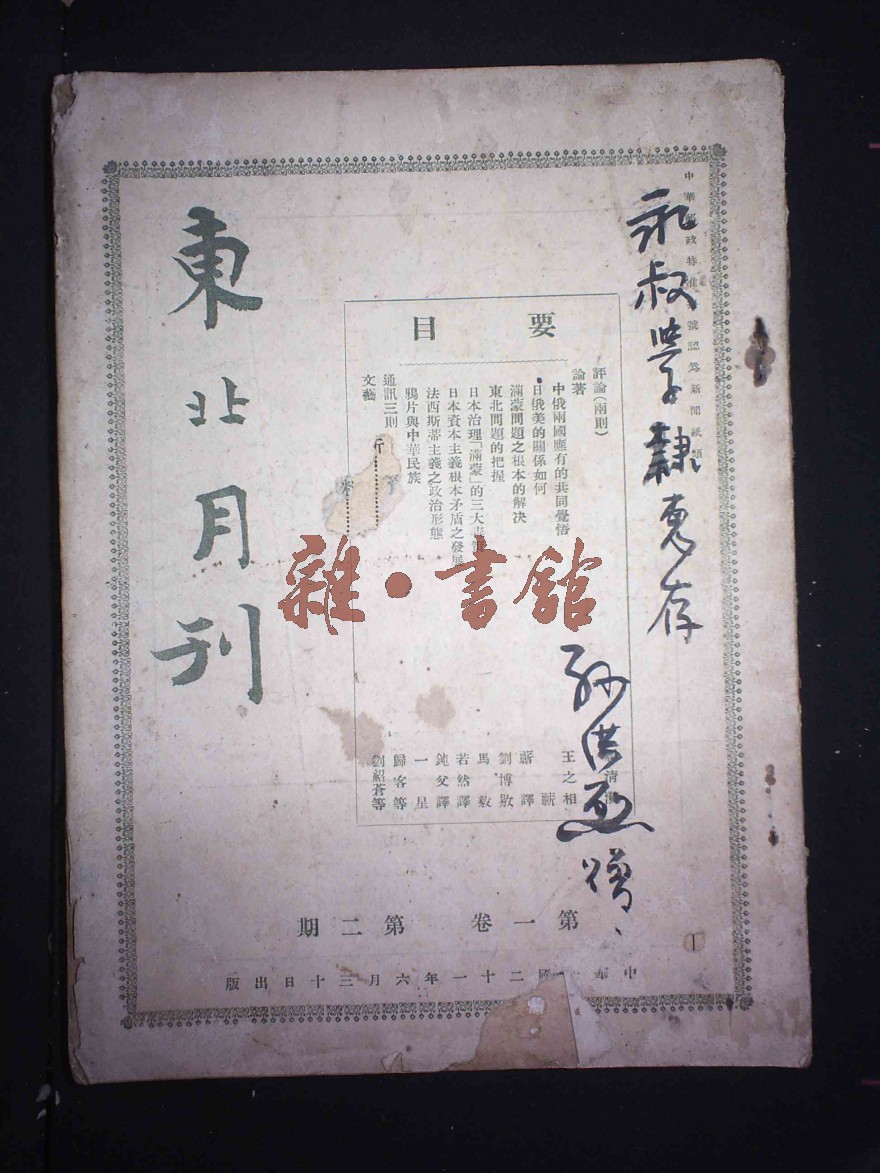 中華郵政特准 號認為新聞紙類
孫
贈
東北月刊
要目
評論(兩則)
論著
中俄兩國應有的共同覺悟
日俄美的關係如何
滿蒙問題之根本的解決
東北問題的把握
日本治理「滿蒙」的三大
日本資本主義根本矛盾之發展
法西斯蒂主義之政治形態
鴉片與中華民族
通訊三則
文藝
王之相
蘄
蘄譯
劉博敭
馬毅
若然譯
鈍父譯
一呈
歸客等
劉紹蒼等
雜·書館
第一卷 第二期
中華 國二十一年六月三十日出版